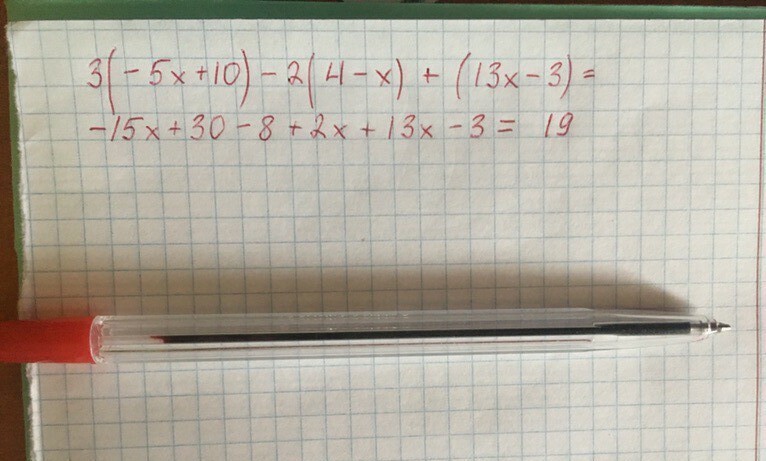 3(-5x+10)-2(4-x)+(13x-3)=
-15x+30-8+2x+13x-3= 19